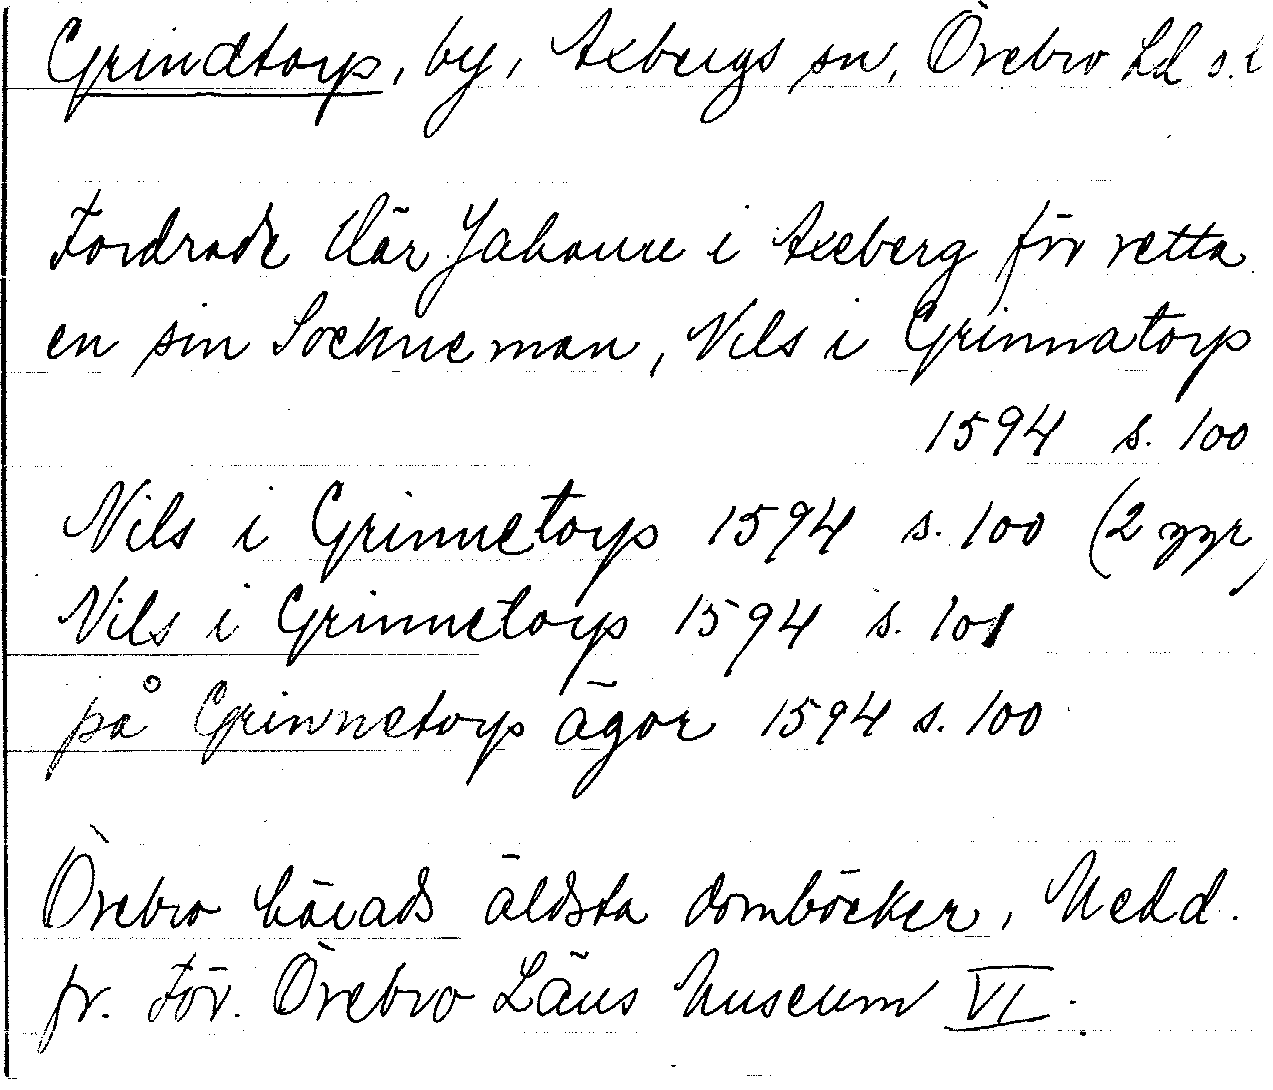 Grindtorp, by, Axbergs sn, Örebro hd ö.l
Fordrade Här Jahanne i Axeberg för retta
en sin Sockneman, Nils i Grinnatorp
1594 s. 100
Nils i Grinnetorp 1594 s. 100 (2 ggr)
Nils i Grinnetorp 1594 s. 101
på Grinnetorp ägor 1594 s. 100
Örebro härads äldsta domböcker, Medd.
fr. För. Örebro Läns Museum VI.